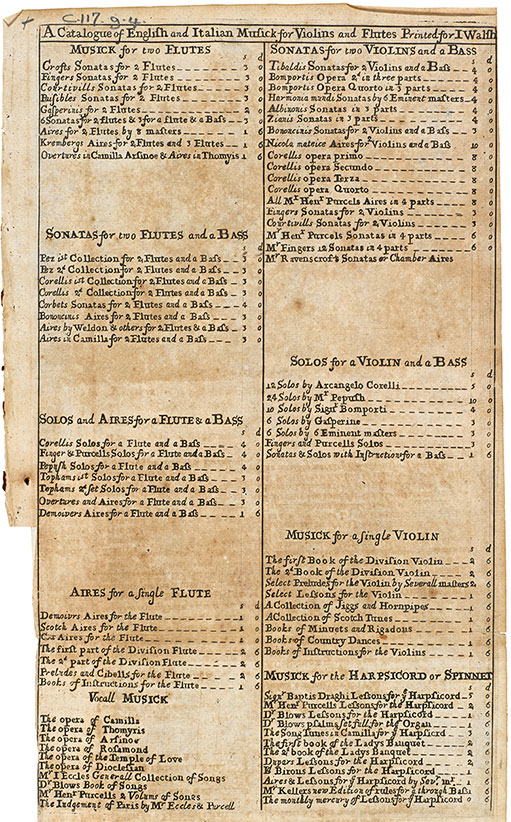 C.117. g.4.
A Catalogue of English and Italian Musick for Violins and Flutes Printed for I Walsh
MUSICK for two FLUTES
s d
Crofts Sonatas for 2 Flutes 3 0
Fingers Sonatas for 2 Flutes 3 0
Courtivills Sonatas for 2 Flutes 3 0
Paisibles Sonatas for 2 Flutes 3 0
Gasperinis for 2 Flutes
6 Sonatas for 2 flutes & 3 for a flute & a Bass 3 0
Aires for 2 Flutes by 8 masters 1 6
Krembergs Aires for 2 Flutes and 3 Flutes
Overtures in Camilla Arsinoe & Aires in Thomyis 1 6
SONATAS for two FLUTES and a BASS
s d
Pez 1st Collection for 2 Flutes and a Bass 3 0
Pez 2d Collection for 2 Flutes and a Bass 3 0
Corellis 1st Collection for 2 Flutes and a Bass 3 0
Corellis 2d Collection for 2 Flutes and a Bass 3 0
Corbets Sonatas for 2 Flutes and a Bass 4 0
Bononcinis Aires for 2 Flutes and a Bass 3 0
Aires by Weldon & others for 2 Flutes & a Bass 3 0
Aires in Camilla for 2 Flutes and a Bass 3 0
SOLOS and AIRES for a FLUTE & a BASS
s d
Corellis Solos for a Flute and a Bass 4 0
Finger & Purcells Solos for a Flute and a Bass 4 0
Pepush Solos for a Flute and a Bass 4 0
Tophams 1st Solos for a Flute and a Bass 3 0
Tophams 2d set Solos for a Flute and a Bass 3 0
Overtures and Aires for a Flute and a Bass 3 0
Demoivers Aires for a Flute and a Bass 1 6
AIRES for a single FLUTE
s d
Demoivrs Aires for the Flute 1 0
Scotch Aires for the Flute 1 0
Aires for the Flute 1 0
The first part of the Division Flute 2 6
The 2d part of the Division Flute 2 6
Preludes and Cibells for the Flute 1 6
Books of Instructions for the Flute 1 6
Vocall MUSICK
The opera of Camilla
The opera of Thomyris
The opera of Arsinoe
The opera of Rosamond
The opera of the Temple of Love
The opera of Dioclesian
Mr I Eccles Generall Collection of Songs
Dr Blows Book of Songs
Mr Henr Purcells 2 Volums of Songs
The Iudgement of Paris by Mr Eccles & Purcell
SONATAS for two VIOLINS and a BASS
s d
Tibaldis Sonatas for 2 Violins and a Bass 4 0
Bomportis Opera 2d in three parts 4 0
Bomportis Opera Quorto in 3 parts 4 0
Harmonia mundi Sonatas by 6 Eminent masters 4 0
Albinonis Sonatas in 3 parts 4 0
Zianis Sonatas in 3 parts 4 0
Bononcinis Sonatas for 2 Violins and a Bass 3 0
Nicola mateice Aires for Violins and a Bass 10 0
Corellis opera primo 8 0
Corellis opera Secundo 8 0
Corellis opera Terza 8 0
Corellis opera Quorto 8 0
All Mr Henr Purcels Aires in 4 parts 8 0
Fingers Sonatas for 2 Violins 3 0
Courtivills Sonatas for 2 Violins 3 0
Mr Henr Purcels Sonatas in 4 parts 6 0
Mr Fingers 12 Sonatas in 4 parts 6 0
Mr Ravenscrofts Sonatas or Chamber Aires
SOLOS for a VIOLIN and a BASS
s d
12 Solos by Arcangelo Corelli 5 0
24 Solos by Mr Pepush 10 0
10 Solos by Signr Bomporti 4 0
6 Solos by Gasperine 3 0
6 Solos by 6 Eminent masters 3 0
Fingers and Purcells Solos 3 0
Sonatas & Solos with Instructions for a Bass 1 0
MUSICK for a single VIOLIN
s d
The first Book of the Division Violin 2 6
The 2d Book of the Division Violin 2 6
Select Preludes for the Violin by Severall masters 2 6
Select Lessons for the Violin 1 6
A Collection of Jiggs and Hornpipes 1 6
A Collection of Scotch Tunes 1 0
Books of Minuets and Rigadons 1 6
Books of Country Dances 1 6
Books of Instructions for the Violins 1 6
MUSICK for the HARPSICORD or SPINNET
s d
Signr Baptis Draghi Lessons for ye Harpsicord 5 0
Mr Henr Purcells Lessons for the Harpsicord 2 6
Dr Blows Lessons for the Harpsicord 1 6
Dr Blows psalms set full for the Organ 1 6
The Song Tunes in Camilla for ye Harpsicord 3 0
The first book of the Ladys Banquet 2 6
The 2d book of the Ladys Banquet 2 6
Lessons for the Harpsicord 2 6
Birons Lessons for the Harpsicord 1 6
Aires & Lessons for ye Harpsicord by Sevr mrs
Mr Kellers new Edition of rules for a through Bass 1 6
The monthly mercury of Lessons for ye Harpsicord 0 6